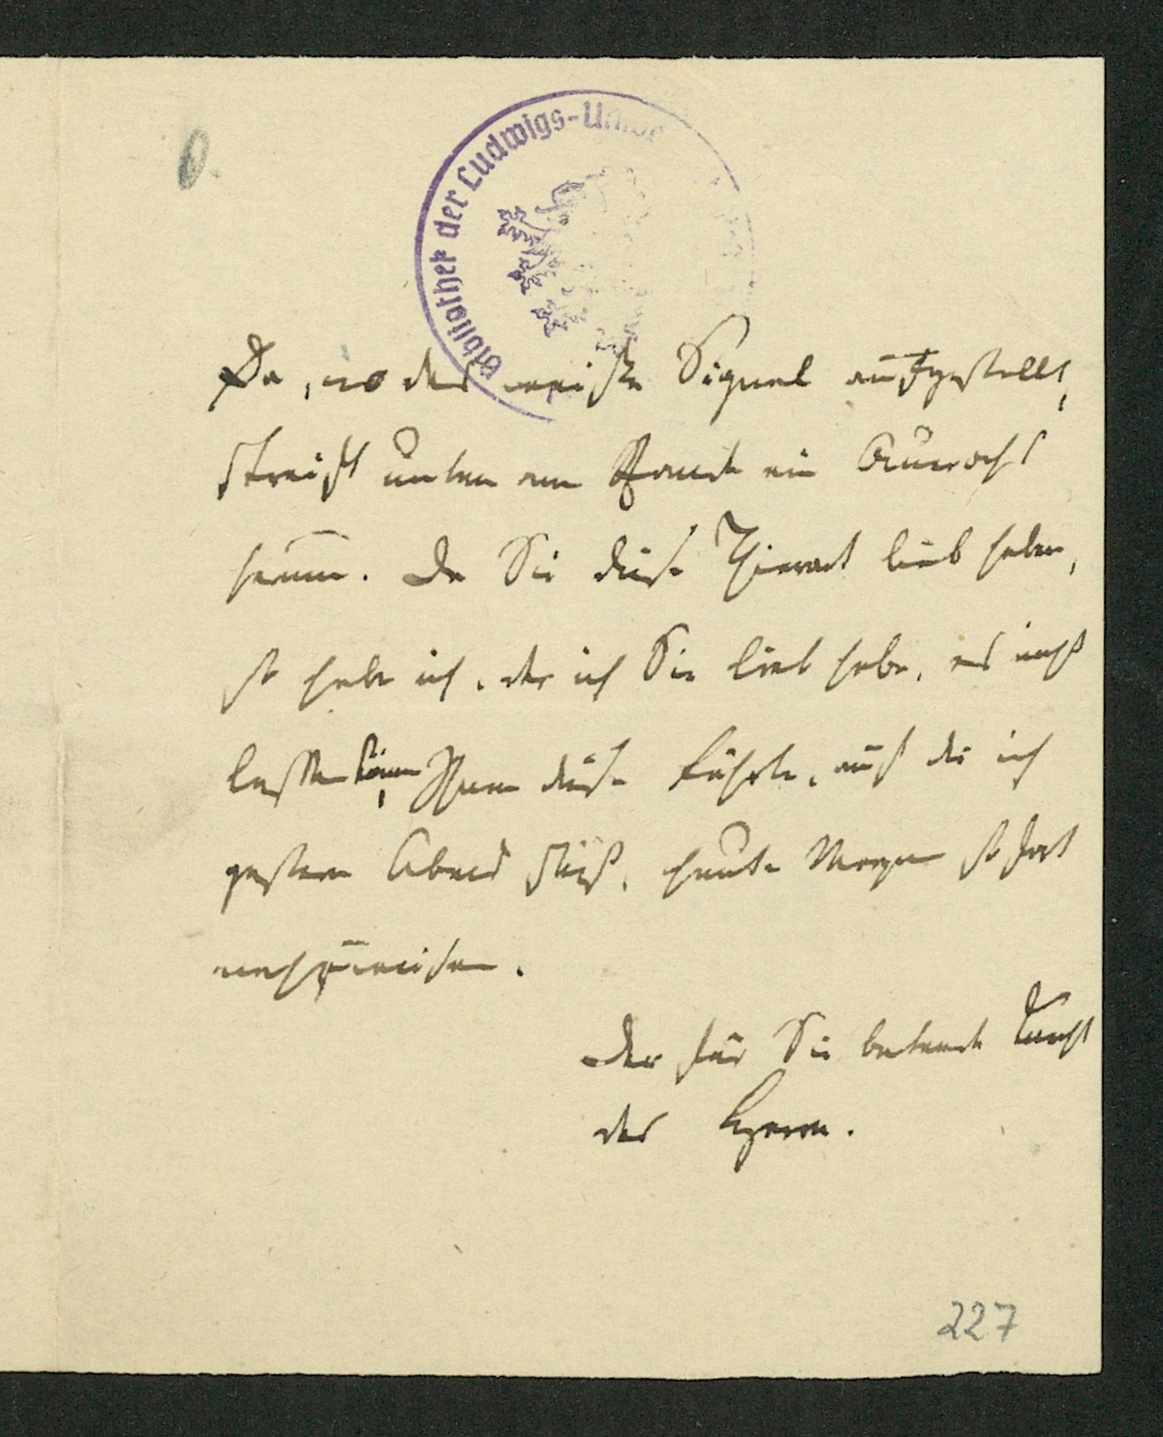 0.
Bibliothek der Ludwigs-Unive
Da, wo das weiße Signal aufgestellt,
streift unten am Rande ein Auerochs
herum. Da Sie diese Thierart lieb haben,
so habe ich, der ich Sie lieb habe, es nicht
lassen können, Ihnen diese Fährte, auf die ich
gestern Abend stieß, heute Morgen sofort
nachzuweisen.
Der für Sie betende Knecht
des Herrn.
227